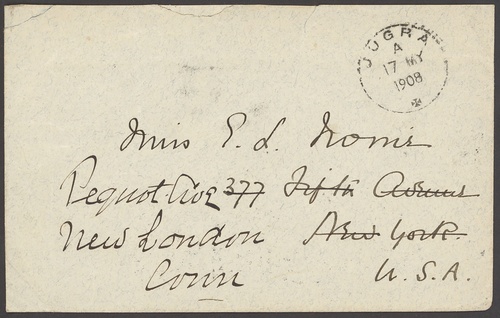 OUGRA
A
17 MY
1908
Miss E. L. Norris
Pequot Ave 377 Fifth Avenue
New London New York.
Conn U.S.A.